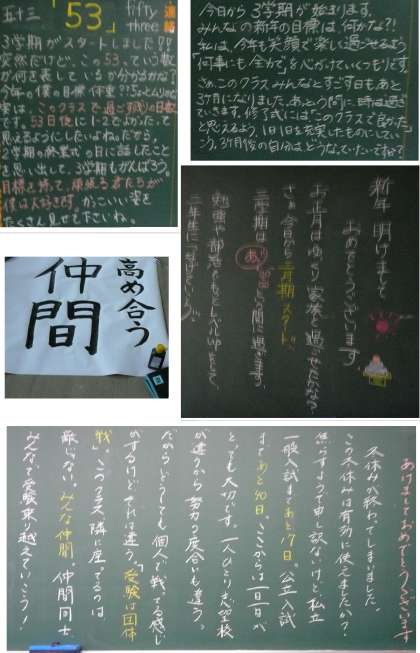 五十三 「53」 fifty three 連絡
3学期がスタートしました!!!
突然だけど、この53っていう数
が何を表しているか分かるかな?
今年の僕の目標体重??
実は、このクラスで過ごす残りの日数
です。53日後に1-2でよかった。って
思えるようにしたいよね。だから、
2学期の終業式の日に話したこと
を思い出して、3学期もがんばろう。
目標を持って、頑張る君たちが
僕は大好きです。かっこいい姿を
たくさん見せて下さいね。
今日から3学期が始まります。
みんなの新年の目標は何かな?!
私は、今年も笑顔で楽しく過ごせるよう
「何事にも全力で」を心がけていくつもりです。
さぁ、このクラスみんなとすごす日もあと
3ヶ月になりました。あっという間に時は過ぎ
ていきます。修了式には“このクラスで良かった”
と思えるよう、1日1日を充実したものにしてい
こう。3ヶ月後の自分はどうなっていたいですか?
新年 明けまして
おめでとうございます
お正月はゆっくり家族と過ごせたかな?
さぁ、今日から三学期スタート、
三学期はあっという間に過ぎます。
勉強や部活をもっとレベルupをして、
二年生につなげていこう。
高め合う
仲間
あけましておめでとうございます
冬休みが終わってしまいました。
この冬休みは有効に使えましたか?
焦らすようで申し訳ないけど私立
一般入試まであと17日。公立入試
まであと40日。ここからは一日一日が
とっても大切です。一人ひとり志望校
が違うから努力の度合いも違う。
だからどうしても個人で戦ってる感じ
がするけどそれは違う。「受験は団体
戦」。このクラス、隣に座ってるのは
敵じゃない。みんな仲間。仲間同士、
みんなで受験乗り越えていこう!